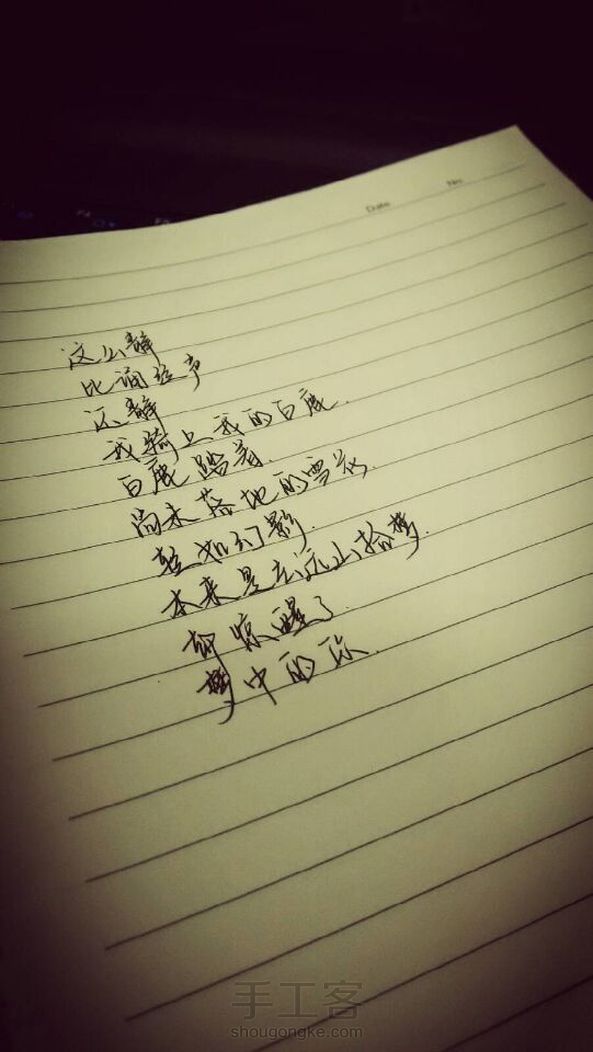 Date No.
这么静
比诵经声
还静
我骑上我的白鹿.
白鹿踏着.
尚未落地的雪花
轻如幻影.
本来是去远山拾梦.
却惊醒了.
梦中的你.
手工客
shougongke.com